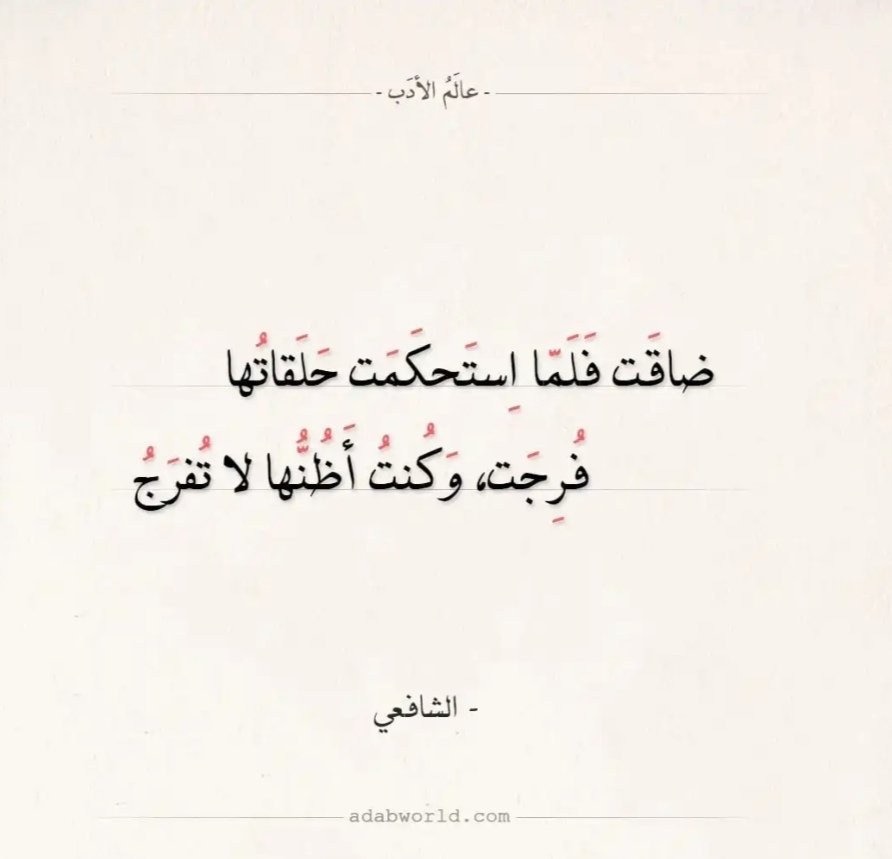 - عالَمُ الأدَب -
ضاقَت فَلَمّا اِستَحكَمَت حَلَقاتُها
فُرِجَت، وَكُنتُ أَظُنُّها لا تُفرَجُ
- الشافعي
adabworld.com